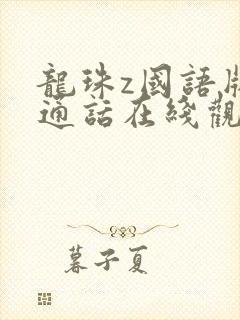 龍珠z國語版
通話在綫觀
暮子夏